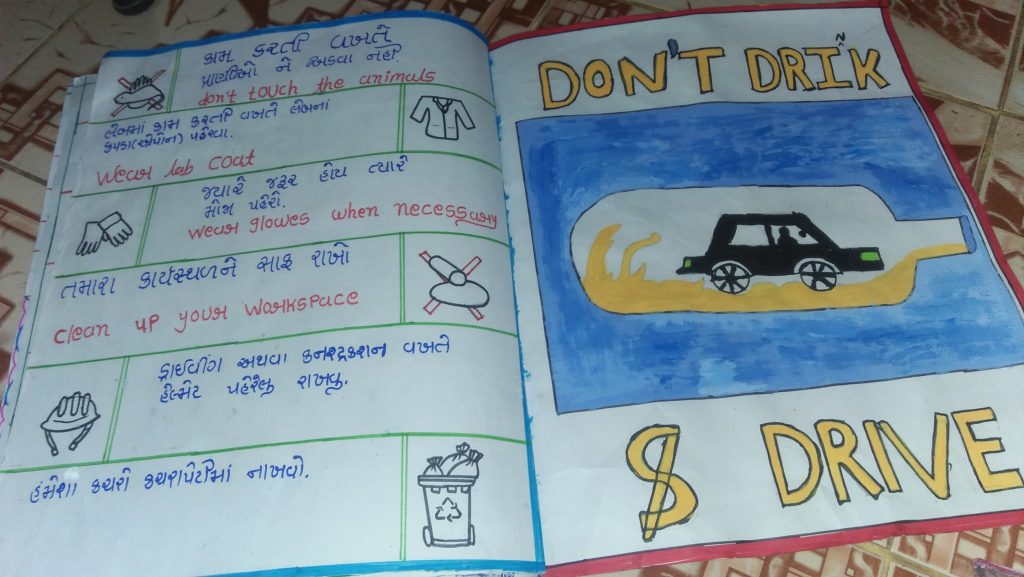 કામ કરતી વખતે
પ્રાણીઓ ને અડકવા નહી
don't touch the animals
લેબમાં કામ કરતી વખતે લેબનાં
કપડા(એપ્રોન) પહેરવા.
Wear lab coat
જ્યારે જરૂર હોય ત્યારે
મોજા પહેરો.
Wear glowes when necessary
તમારા કાર્યસ્થળને સાફ રાખો
Clean up your workspace
ડ્રાઈવીંગ અથવા કનસ્ટ્રકશન વખતે
હેલ્મેટ પહેરેલુ રાખવુ.
હંમેશા કચરો કચરાપેટીમાં નાખવો.
DON'T DRIÑK
& DRIVE